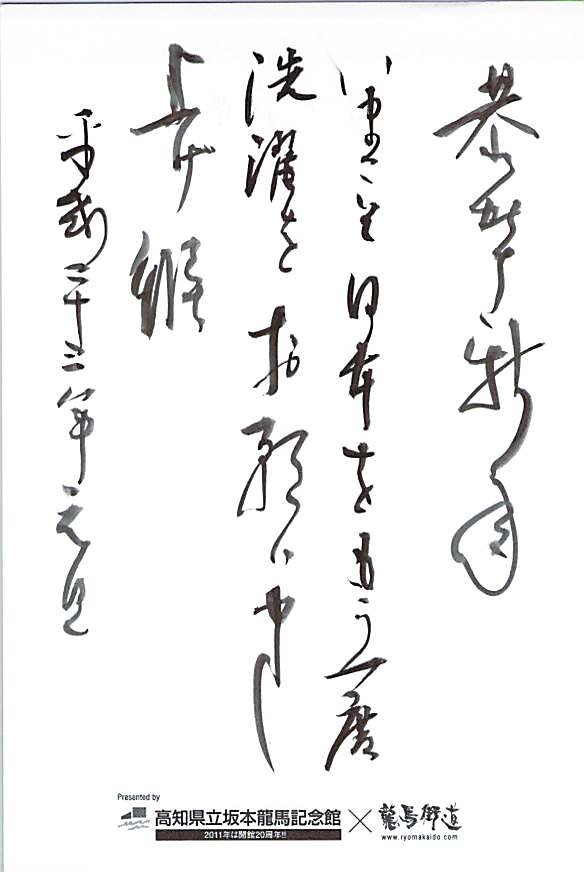 恭賀新年
いまこそ日本をもう一度
洗濯をお願い申し
上げ候
平成二十三年元旦
Presented by
高知県立坂本龍馬記念館 × 龍馬街道
2011年は開館20周年!!
www.ryomakaido.com